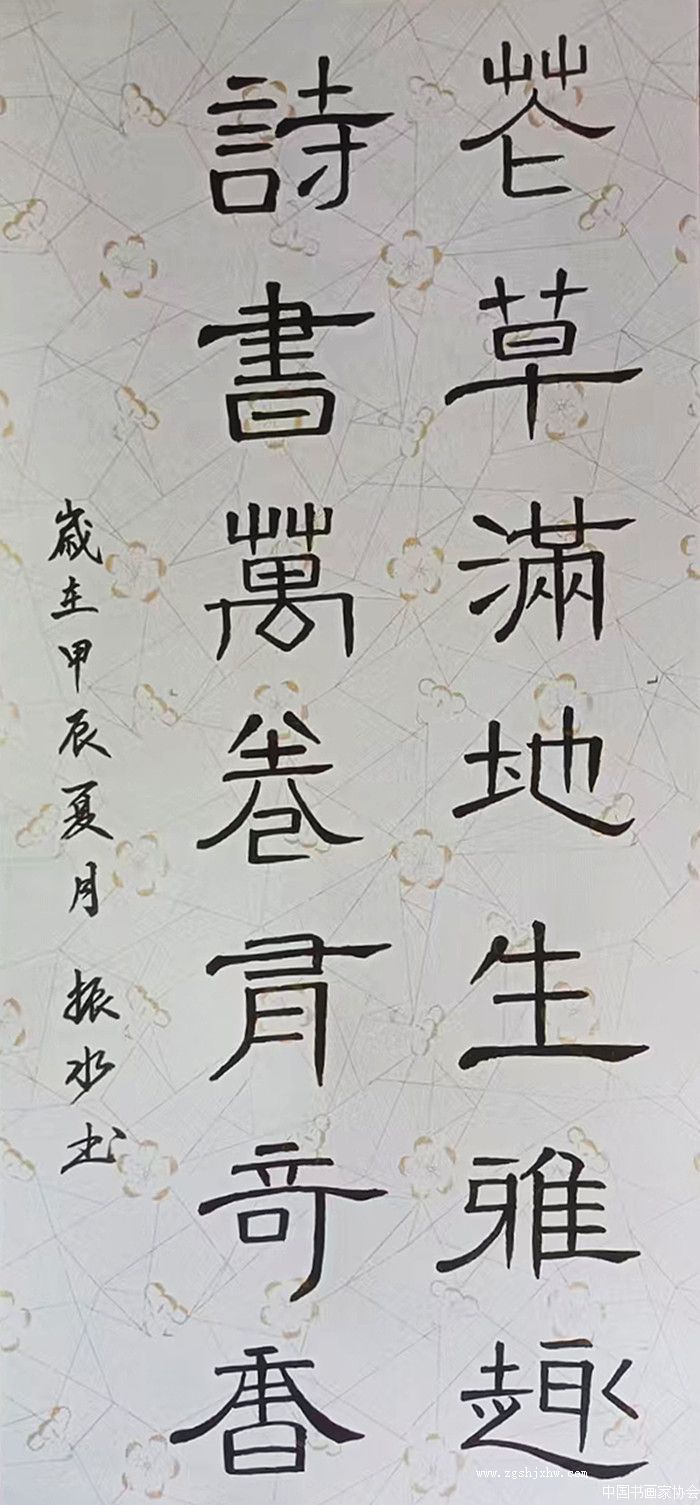 花草滿地生雅趣
詩書萬卷有奇香
歲在甲辰夏月 振水书
www.zgshjxhw.com
中国书画家协会